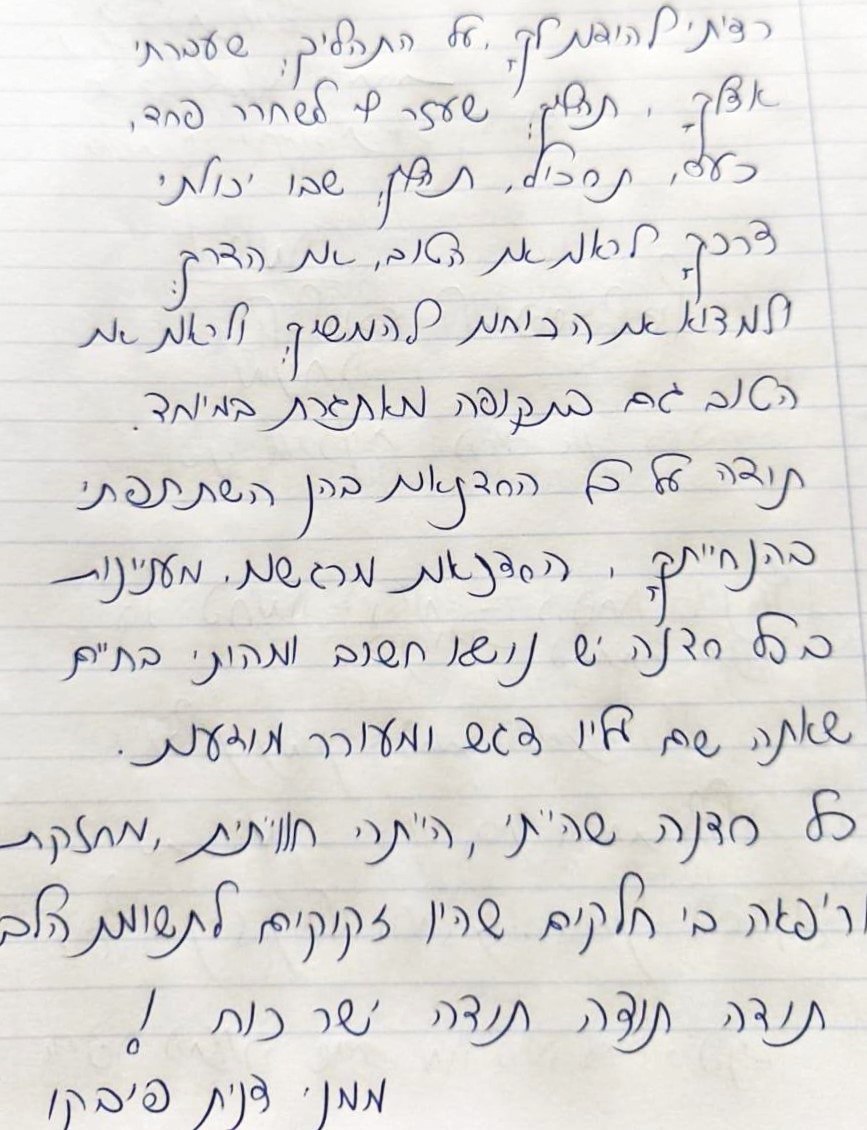 רציתי להודות לך, על התהליך, שעברתי
אצלך, תהליך שעזר לי לשחרר פחד,
כעס, תסכול, תהליך שבו יכולתי
דרכך לראות את הטוב, את הדרך
ולמצוא את הכוחות להמשיך ולראות את
הטוב גם בתקופה מאתגרת במיוחד.
תודה על כל הסדנאות בהן השתתפתי
בהנחייתך, הסדנאות מרגשות, מעניינות
בכל סדנה יש נושא חשוב ומהותי בחיים
שאתה שם עליו דגש ומעורר מודעות.
כל סדנה שהייתי, הייתה חוויתית, מחזקת
וריפאה בי חלקים שהיו זקוקים לתשומת הלב
תודה תודה תודה ישר כוח !
ממני דנית פיבקו